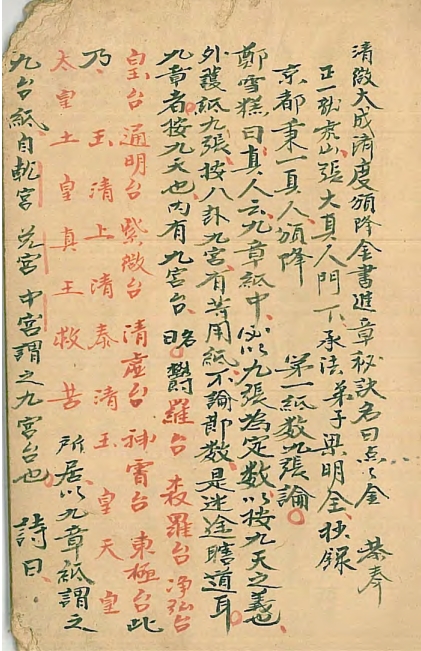 清微大成清度頒降金書進章秘訣名曰点金 恭奉
正一龍虎山張大真人門下承法弟子梁明全抄録
京都東一真人頒降 第一紙数九張論
鄭雪糕曰真人云九章紙中必以九張為定数以按九天之義也
外護紙九張按八卦九宮有等用紙不論節数是迷途瞎道耳
九章者按九天也内有九宮台曰欝羅台森羅台净弘台
皇台通明台紫微台清虚台神霄台東極台此
乃玉清上清泰清玉皇天皇
太皇土皇真王救苦 所居以九章紙謂之
九台紙自乾宮兑宮中宮謂之九宮台也 詩曰